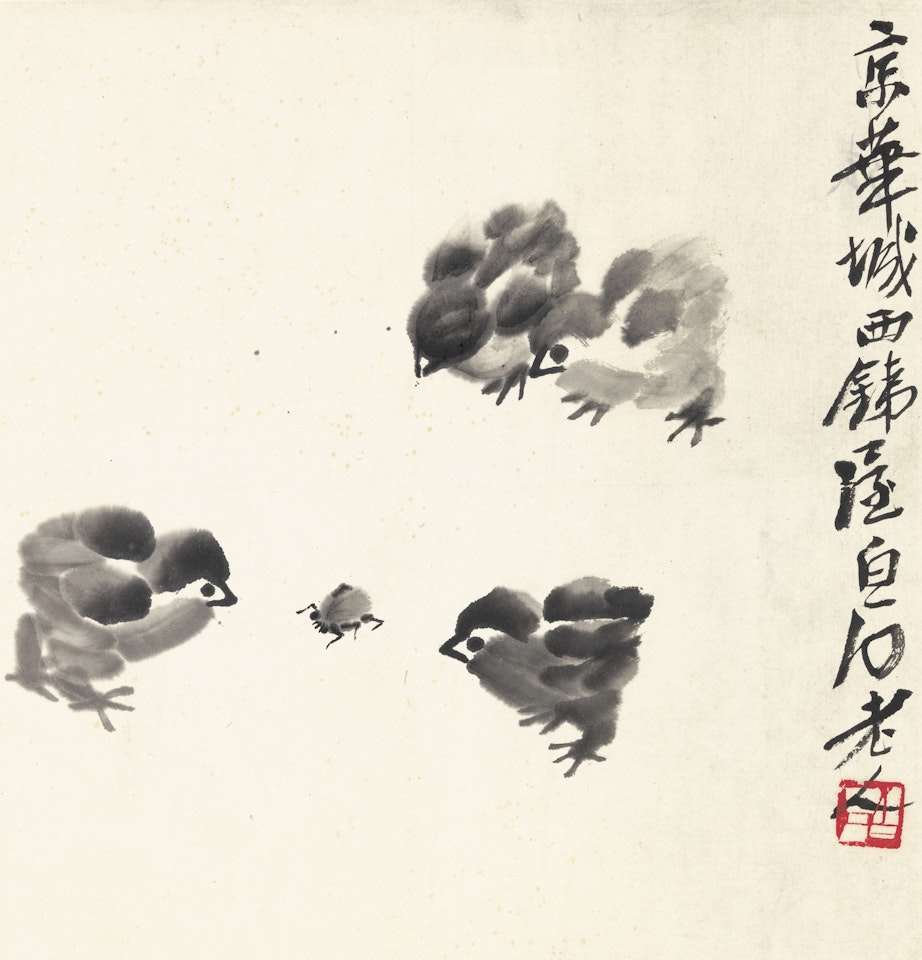 京華城西銕屋白石老人